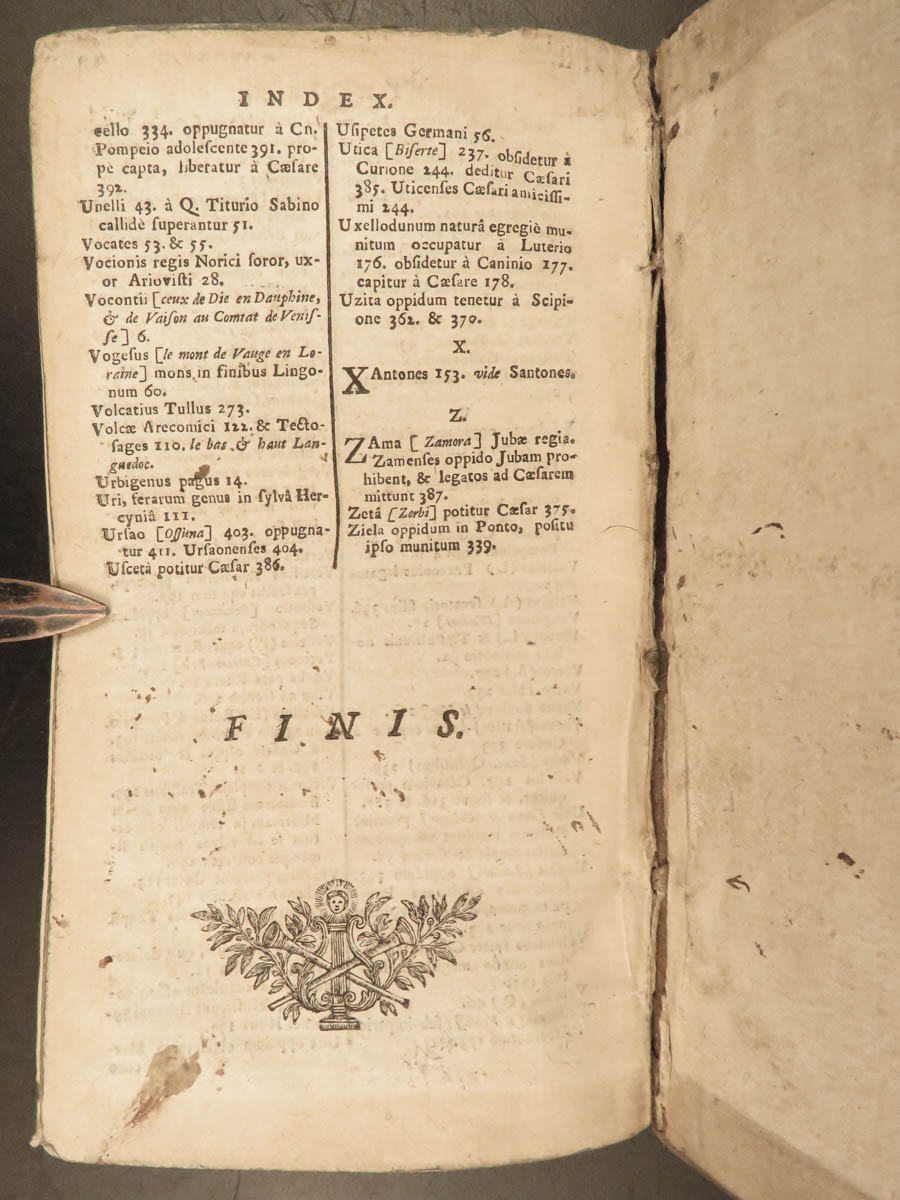 INDEX.
cello 334. oppugnatur à Cn.
Pompeio adolescente 391. pro-
pè capta, liberatur à Cæsare
392.
Unelli 43. à Q. Titurio Sabino
callidè ſuperantur 51.
Vocates 53. & 55.
Vocionis regis Norici ſoror, ux-
or Arioviſti 28.
Vocontii [ceux de Die en Dauphine,
& de Vaiſon au Comtat de Veniſ-
ſe] 6.
Vogeſus [le mont de Vauge en Lo-
raine] mons in finibus Lingo-
num 60.
Volcatius Tullus 273.
Volcæ Arecomici 122. & Tecto-
ſages 110. le bas & haut Lan-
guedoc.
Urbigenus pagus 14.
Uri, ferarum genus in ſylvâ Her-
cyniâ 111.
Urſao [Oſſuna] 403. oppugna-
tur 411. Urſaonenſes 404.
Uſcetâ potitur Cæſar 386.
Uſipetes Germani 56.
Utica [Biſerte] 237. obſidetur à
Curione 244. deditur Cæſari
385. Uticenſes Cæſari amiciſſi-
mi 244.
Uxellodunum naturâ egregiè mu-
nitum occupatur à Luterio
176. obſidetur à Caninio 177.
capitur à Cæſare 178.
Uzita oppidum tenetur à Scipi-
one 362. & 370.
X.
XAntones 153. vide Santones.
Z.
ZAma [Zamora] Jubæ regia.
Zamenſes oppido Jubam pro-
hibent, & legatos ad Cæſarem
mittunt 387.
Zetâ [Zerbi] potitur Cæſar 375.
Ziela oppidum in Ponto, poſitu
ipſo munitum 339.
FINIS.